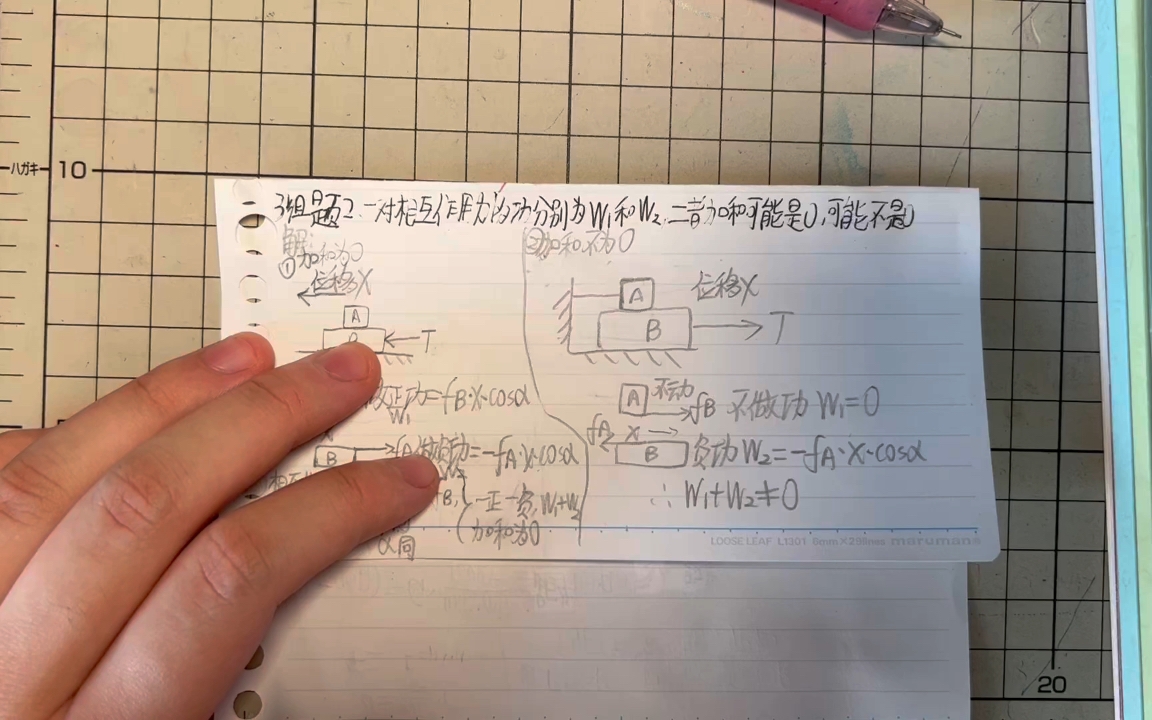 ハガキ 10
3组题2.一对相互作用力的功分别为W₁和W₂,二者加和可能是0,可能不是0
解:
①加和为0
位移X
A
T
做正功=fB·X·cosα
W₁
B fA做负功=-fA·X·cosα
一正一负,W₁+W₂
加和为0
α同
②加和不为0
A 位移X
B T
A 不动 fB 不做功 W₁=0
fA X
B 负功W₂=-fA·X·cosα
∴ W₁+W₂≠0
LOOSE LEAF L1301 6mm×29lines maruman
20